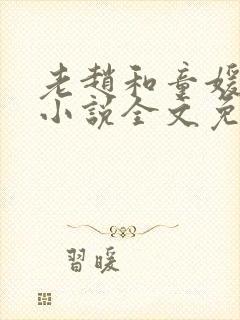 老趙和童媛
小說全文免
習暖